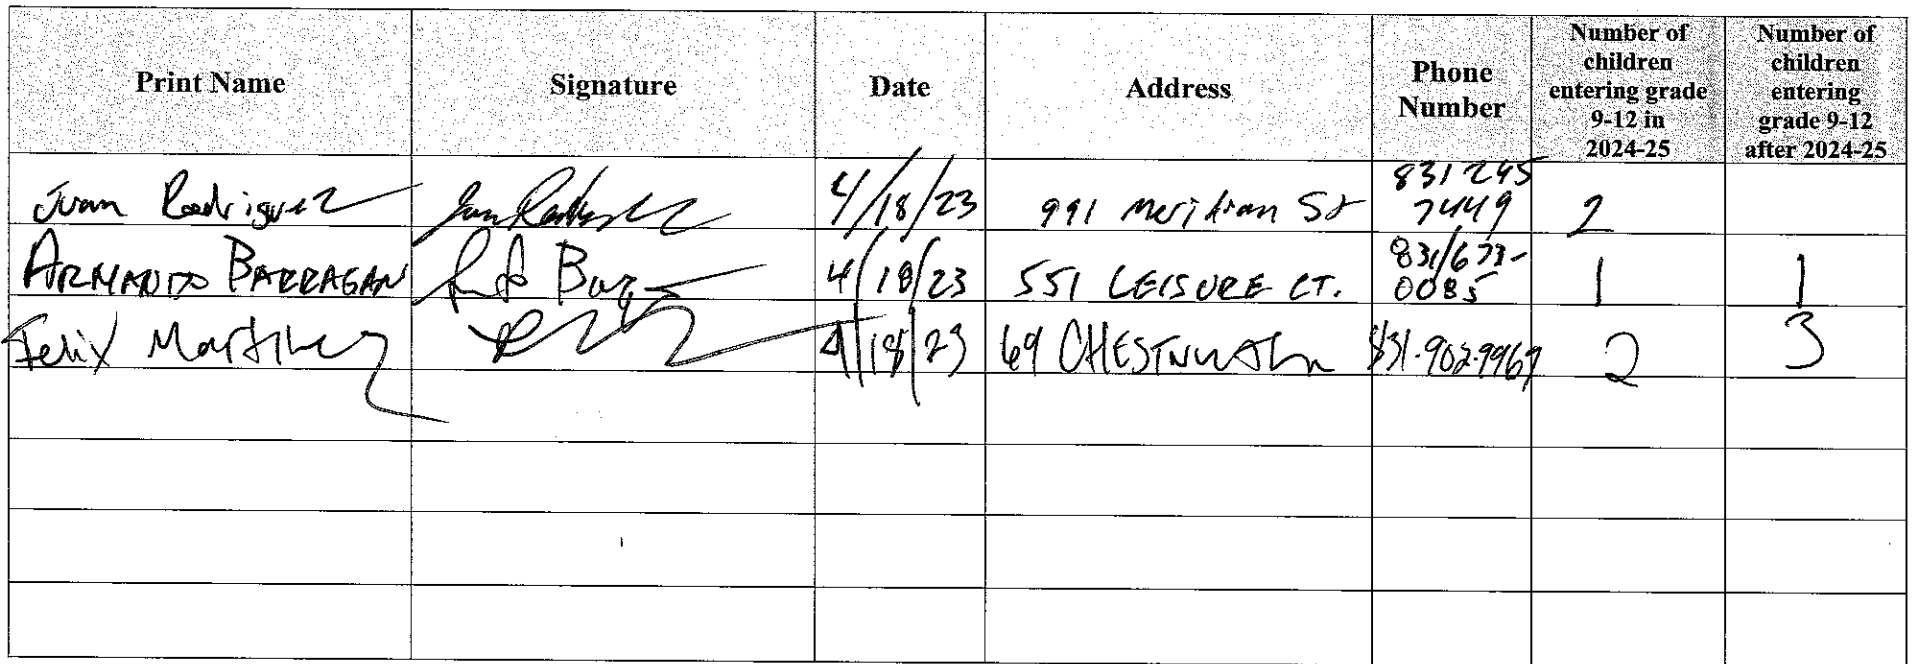 Print Name Signature Date Address Phone Number Number of children entering grade 9-12 in 2024-25 Number of children entering grade 9-12 after 2024-25
Juan Rodriguez 4/18/23 991 Meridian St 831 245 7449 2
ARMANDO BARRAGAN 4/18/23 551 LEISURE CT. 831/673-0085 1 1
Felix Martinez 4/18/23 69 CHESTNUT Ln 831-902-9969 2 3